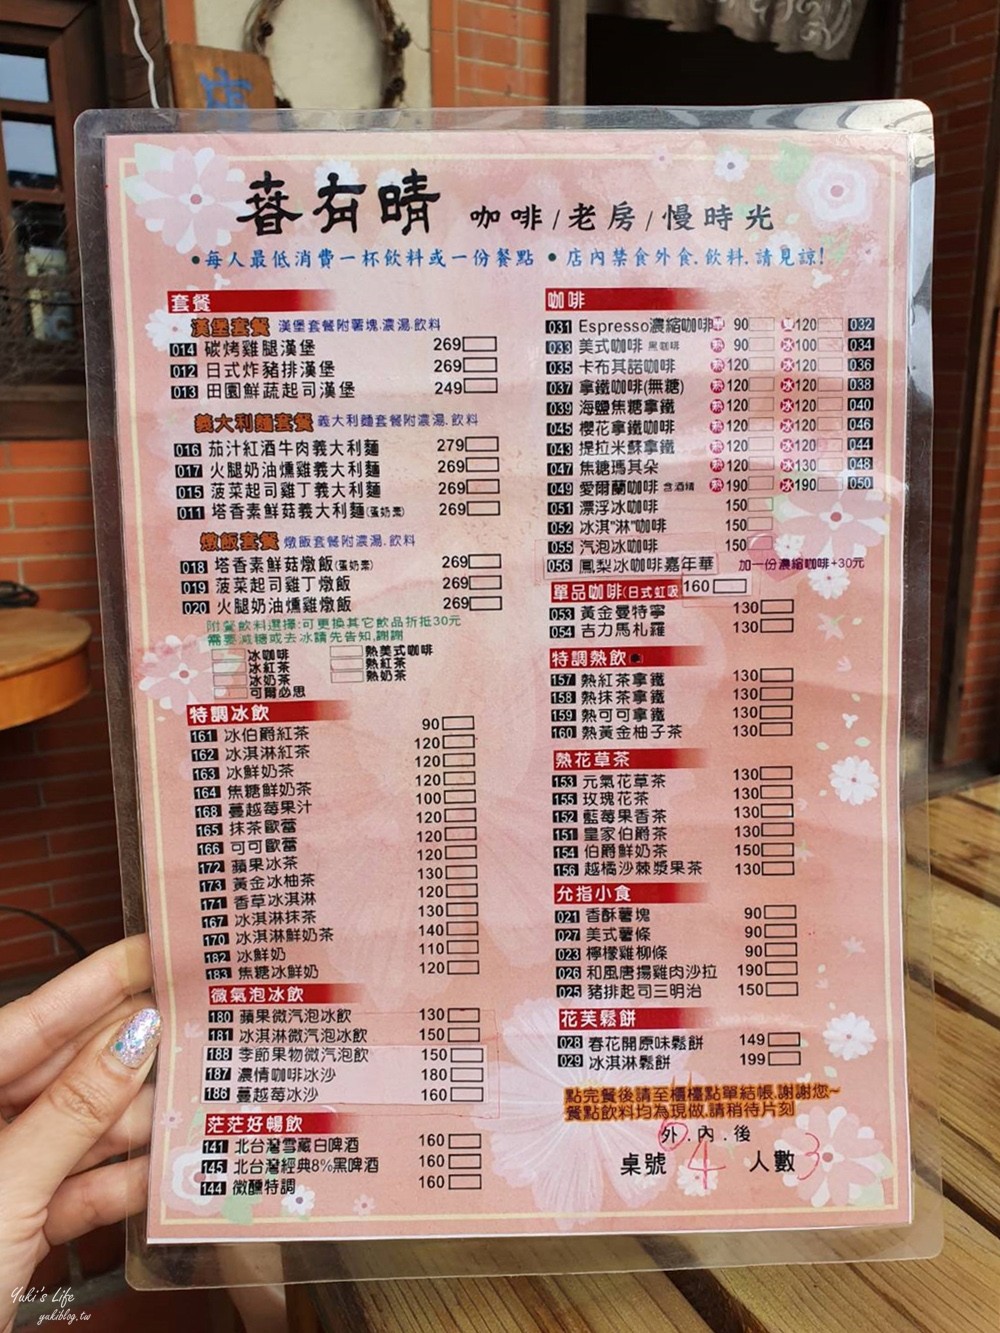 春有晴 咖啡/老房/慢時光
•每人最低消費一杯飲料或一份餐點 •店內禁食外食.飲料.請見諒!
套餐
漢堡套餐 漢堡套餐附薯塊.濃湯.飲料
014 碳烤雞腿漢堡 269
012 日式炸豬排漢堡 269
013 田園鮮蔬起司漢堡 249
義大利麵套餐 義大利麵套餐附濃湯.飲料
016 茄汁紅酒牛肉義大利麵 279
017 火腿奶油燻雞義大利麵 269
015 菠菜起司雞丁義大利麵 269
011 塔香素鮮菇義大利麵(蛋奶素) 269
燉飯套餐 燉飯套餐附濃湯.飲料
018 塔香素鮮菇燉飯(蛋奶素) 269
019 菠菜起司雞丁燉飯 269
020 火腿奶油燻雞燉飯 269
附餐飲料選擇:可更換其它飲品折抵30元
需要減糖或去冰請先告知,謝謝
冰咖啡 熱美式咖啡
冰紅茶 熱紅茶
冰奶茶 熱奶茶
可爾必思
特調冰飲
161 冰伯爵紅茶 90
162 冰淇淋紅茶 120
163 冰鮮奶茶 120
164 焦糖鮮奶茶 120
168 蔓越莓果汁 100
165 抹茶歐蕾 120
166 可可歐蕾 120
172 蘋果冰茶 120
173 黃金冰柚茶 130
171 香草冰淇淋 120
167 冰淇淋抹茶 130
170 冰淇淋鮮奶茶 140
182 冰鮮奶 110
183 焦糖冰鮮奶 120
微氣泡冰飲
180 蘋果微汽泡冰飲 130
181 冰淇淋微汽泡冰飲 150
188 季節果物微汽泡飲 150
187 濃情咖啡冰沙 180
186 蔓越莓冰沙 160
茫茫好暢飲
141 北台灣雪藏白啤酒 160
145 北台灣經典8%黑啤酒 160
144 微醺特調 160
咖啡
031 Espresso濃縮咖啡 90 120 032
033 美式咖啡 黑咖啡 熱 90 冰100 034
035 卡布其諾咖啡 熱120 冰120 036
037 拿鐵咖啡(無糖) 熱120 冰120 038
039 海鹽焦糖拿鐵 熱120 冰120 040
045 櫻花拿鐵咖啡 熱120 冰120 046
043 提拉米蘇拿鐵 熱120 冰120 044
047 焦糖瑪其朵 熱120 冰130 048
049 愛爾蘭咖啡 含酒精 熱190 冰190 050
051 漂浮冰咖啡 150
052 冰淇"淋"咖啡 150
055 汽泡冰咖啡 150
056 鳳梨冰咖啡嘉年華 加一份濃縮咖啡+30元
單品咖啡(日式虹吸 160
053 黃金曼特寧 130
054 吉力馬札羅 130
特調熱飲
157 熱紅茶拿鐵 130
158 熱抹茶拿鐵 130
159 熱可可拿鐵 130
160 熱黃金柚子茶 130
熱花草茶
153 元氣花草茶 130
155 玫瑰花茶 130
152 藍莓果香茶 130
151 皇家伯爵茶 130
154 伯爵鮮奶茶 150
156 越橘沙棘漿果茶 130
允指小食
021 香酥薯塊 90
027 美式薯條 90
023 檸檬雞柳條 90
026 和風唐揚雞肉沙拉 190
025 豬排起司三明治 150
花芙鬆餅
028 春花開原味鬆餅 149
029 冰淇淋鬆餅 199
點完餐後請至櫃檯點單結帳,謝謝您~
餐點飲料均為現做,請稍待片刻
外.內.後
桌號 4 人數 3
Yuki's Life
yukiblog.tw